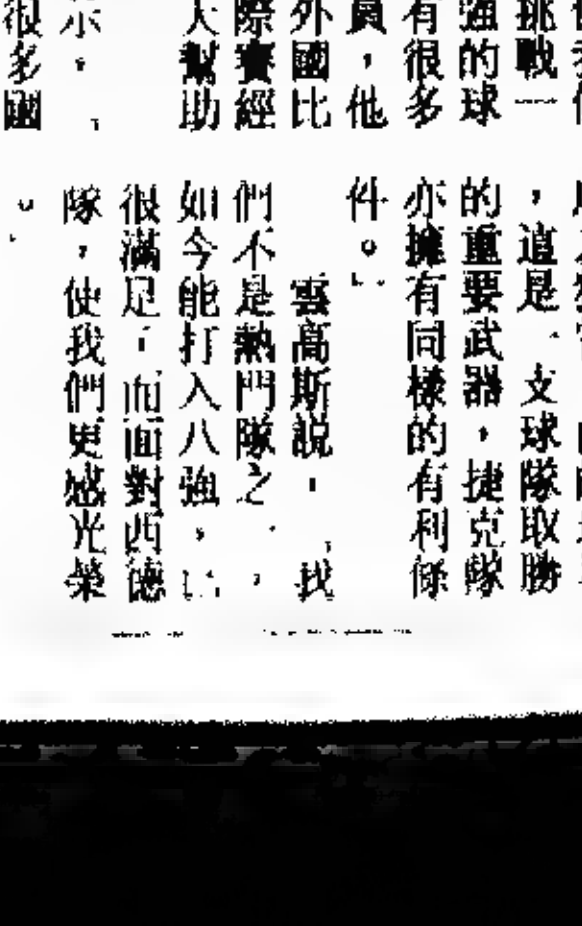 挑戰一
強的球
有很多
員，他
外國比
際賽經
大幫助
示，「
很多國
，這是一支球隊取勝
的重要武器，捷克隊
亦擁有同樣的有利條
件。」
雲高斯說：「我
們不是熱門隊之一，
如今能打入八強，已
很滿足，而面對西德
隊，使我們更感光榮
。」